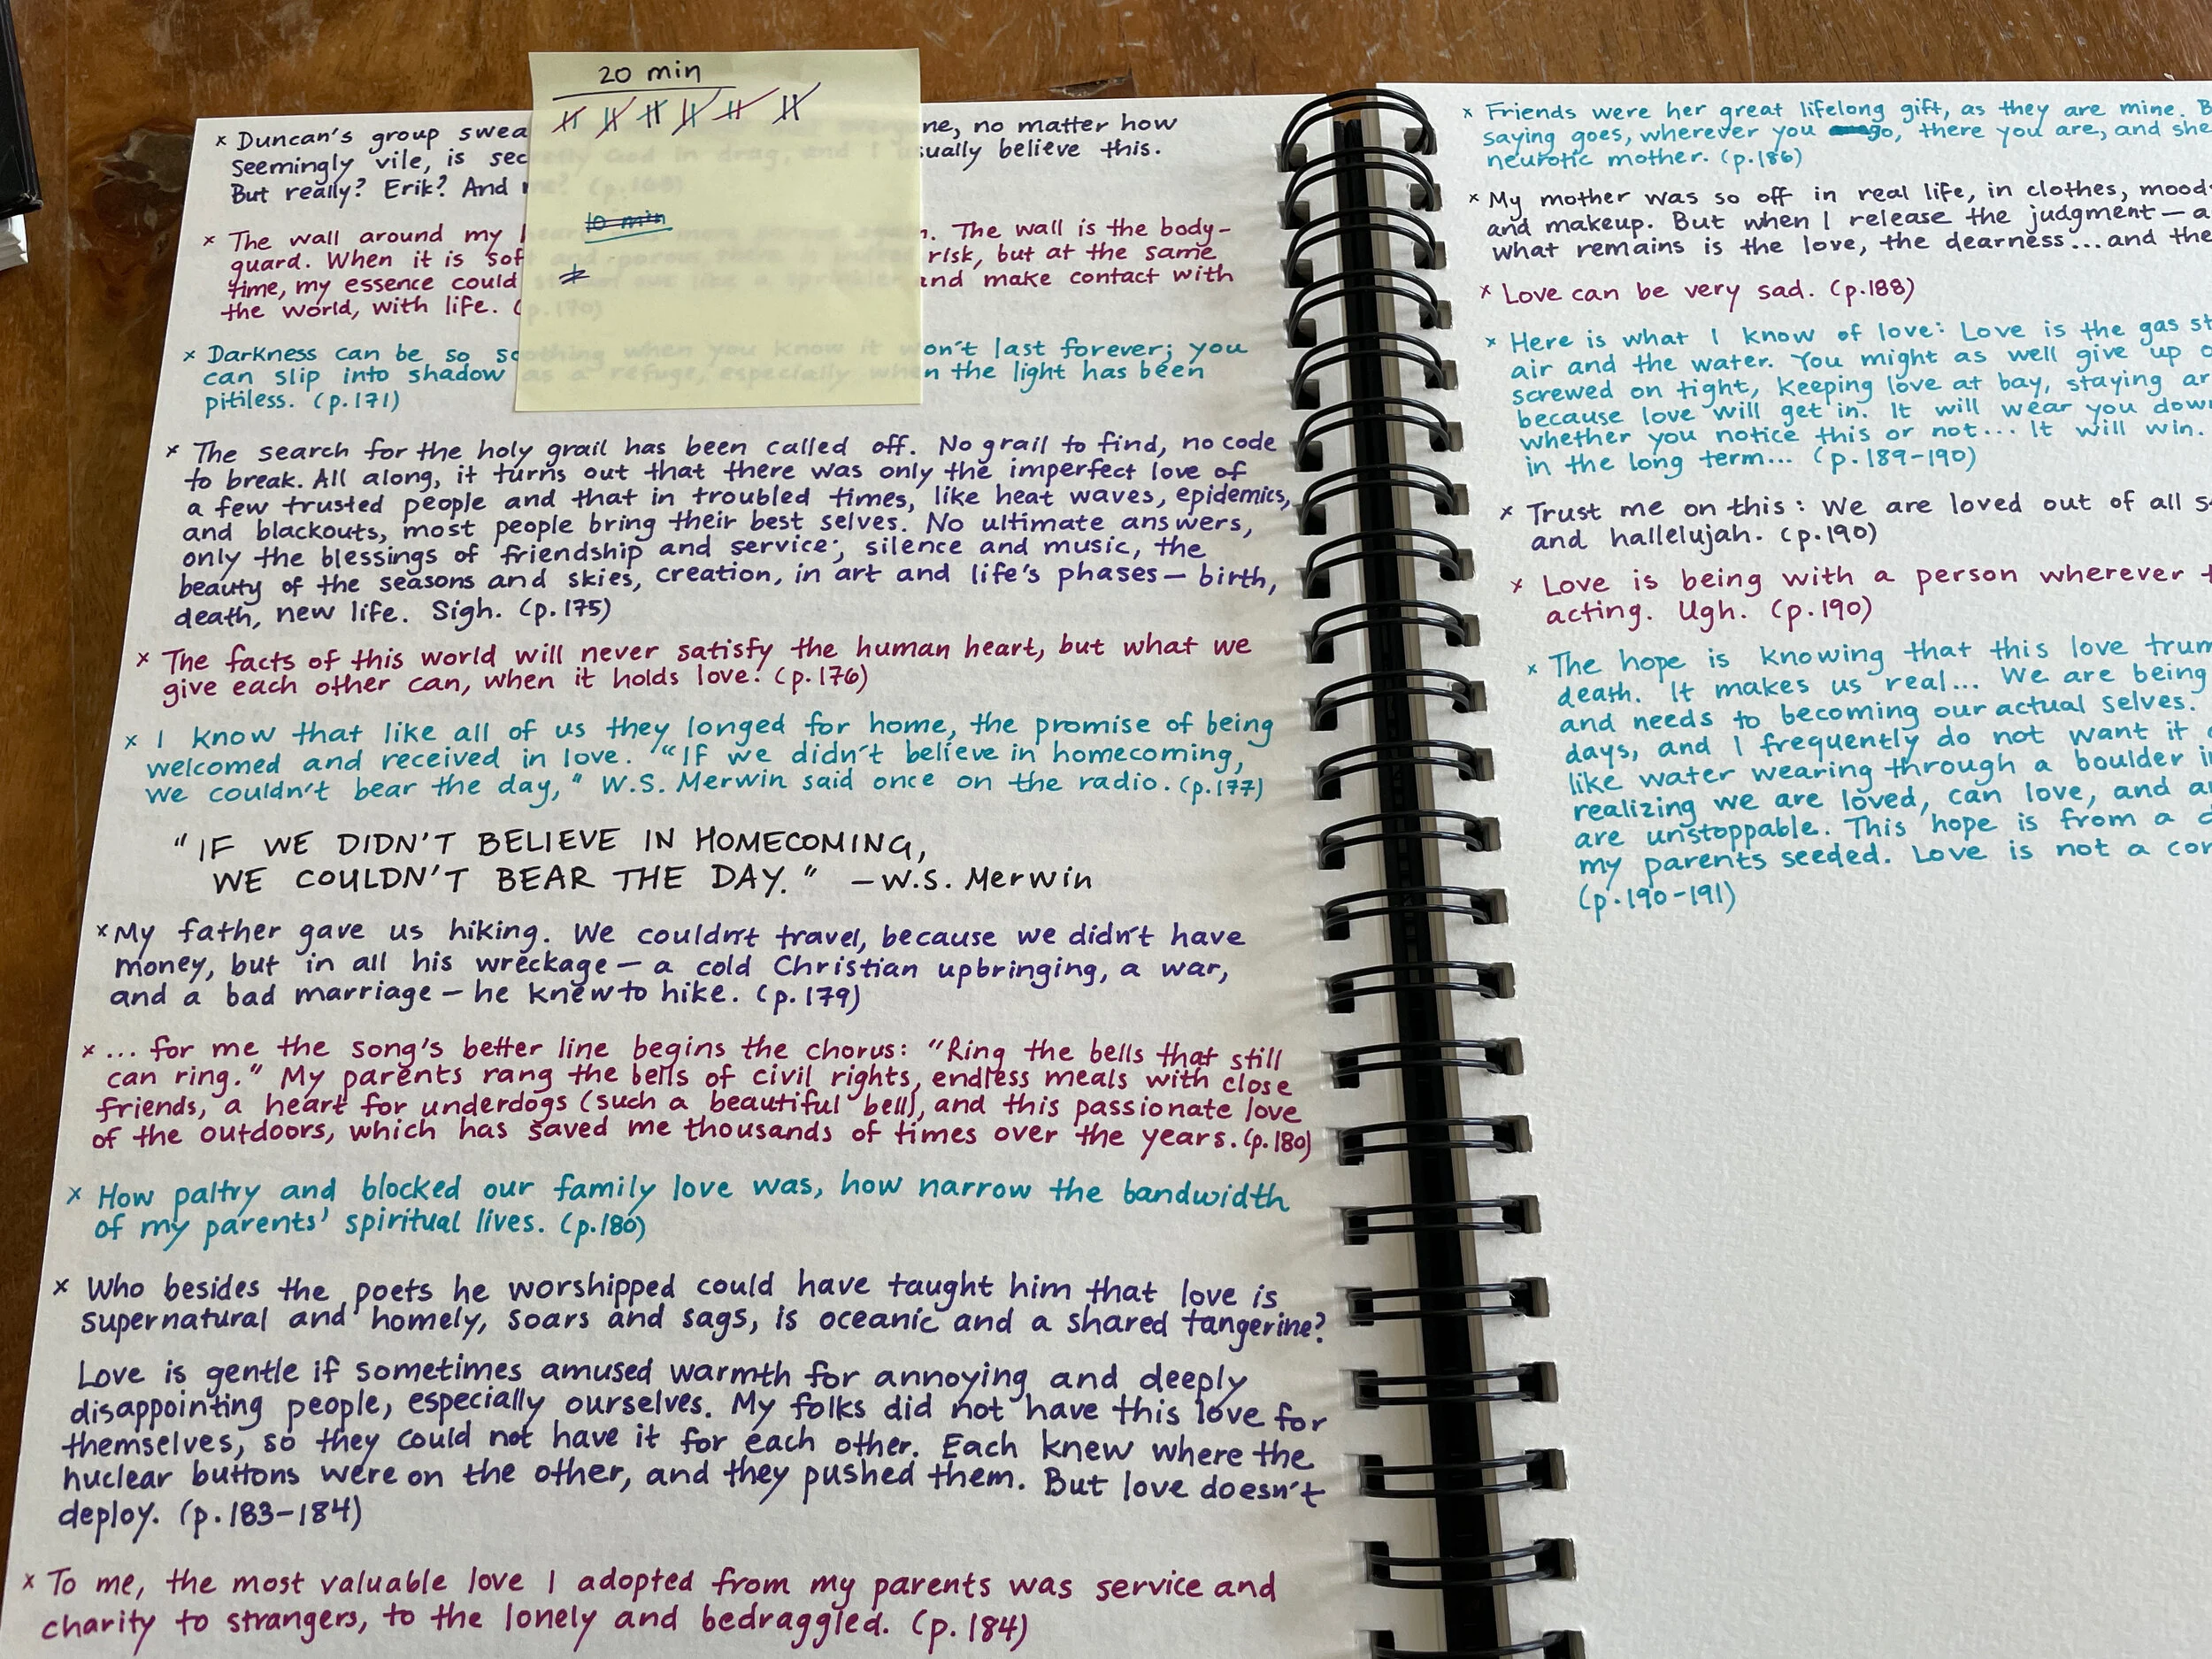 20 min
10 min
x Duncan's group swea ne, no matter how
seemingly vile, is sec God in drag, and I usually believe this.
But really? Erik? And me? (p.168)
x The wall around my h . The wall is the body-
guard. When it is soft and porous risk, but at the same
time, my essence could like a sprinkler and make contact with
the world, with life. (p.170)
x Darkness can be so soothing when you know it won't last forever; you
can slip into shadow as a refuge, especially when the light has been
pitiless. (p.171)
x The search for the holy grail has been called off. No grail to find, no code
to break. All along, it turns out that there was only the imperfect love of
a few trusted people and that in troubled times, like heat waves, epidemics,
and blackouts, most people bring their best selves. No ultimate answers,
only the blessings of friendship and service; silence and music, the
beauty of the seasons and skies, creation, in art and life's phases — birth,
death, new life. Sigh. (p.175)
x The facts of this world will never satisfy the human heart, but what we
give each other can, when it holds love. (p.176)
x I know that like all of us they longed for home, the promise of being
welcomed and received in love. "If we didn't believe in homecoming,
we couldn't bear the day," W.S. Merwin said once on the radio. (p.177)
"IF WE DIDN'T BELIEVE IN HOMECOMING,
WE COULDN'T BEAR THE DAY." —W.S. Merwin
x My father gave us hiking. We couldn't travel, because we didn't have
money, but in all his wreckage — a cold Christian upbringing, a war,
and a bad marriage — he knew to hike. (p.179)
x ... for me the song's better line begins the chorus: "Ring the bells that still
can ring." My parents rang the bells of civil rights, endless meals with close
friends, a heart for underdogs (such a beautiful bell), and this passionate love
of the outdoors, which has saved me thousands of times over the years. (p.180)
x How paltry and blocked our family love was, how narrow the bandwidth
of my parents' spiritual lives. (p.180)
x Who besides the poets he worshipped could have taught him that love is
supernatural and homely, soars and sags, is oceanic and a shared tangerine?
Love is gentle if sometimes amused warmth for annoying and deeply
disappointing people, especially ourselves. My folks did not have this love for
themselves, so they could not have it for each other. Each knew where the
nuclear buttons were on the other, and they pushed them. But love doesn't
deploy. (p.183-184)
x To me, the most valuable love I adopted from my parents was service and
charity to strangers, to the lonely and bedraggled. (p.184)
x Friends were her great lifelong gift, as they are mine. B
saying goes, wherever you go, there you are, and she
neurotic mother. (p.186)
x My mother was so off in real life, in clothes, mood
and makeup. But when I release the judgment — a
what remains is the love, the dearness... and the
x Love can be very sad. (p.188)
x Here is what I know of love: Love is the gas st
air and the water. You might as well give up
screwed on tight, keeping love at bay, staying ar
because love will get in. It will wear you down
whether you notice this or not... It will win.
in the long term... (p.189-190)
x Trust me on this: We are loved out of all s
and hallelujah. (p.190)
x Love is being with a person wherever t
acting. Ugh. (p.190)
x The hope is knowing that this love trum
death. It makes us real... We are being
and needs to becoming our actual selves.
days, and I frequently do not want it
like water wearing through a boulder i
realizing we are loved, can love, and a
are unstoppable. This hope is from a d
my parents seeded. Love is not a con
(p.190-191)